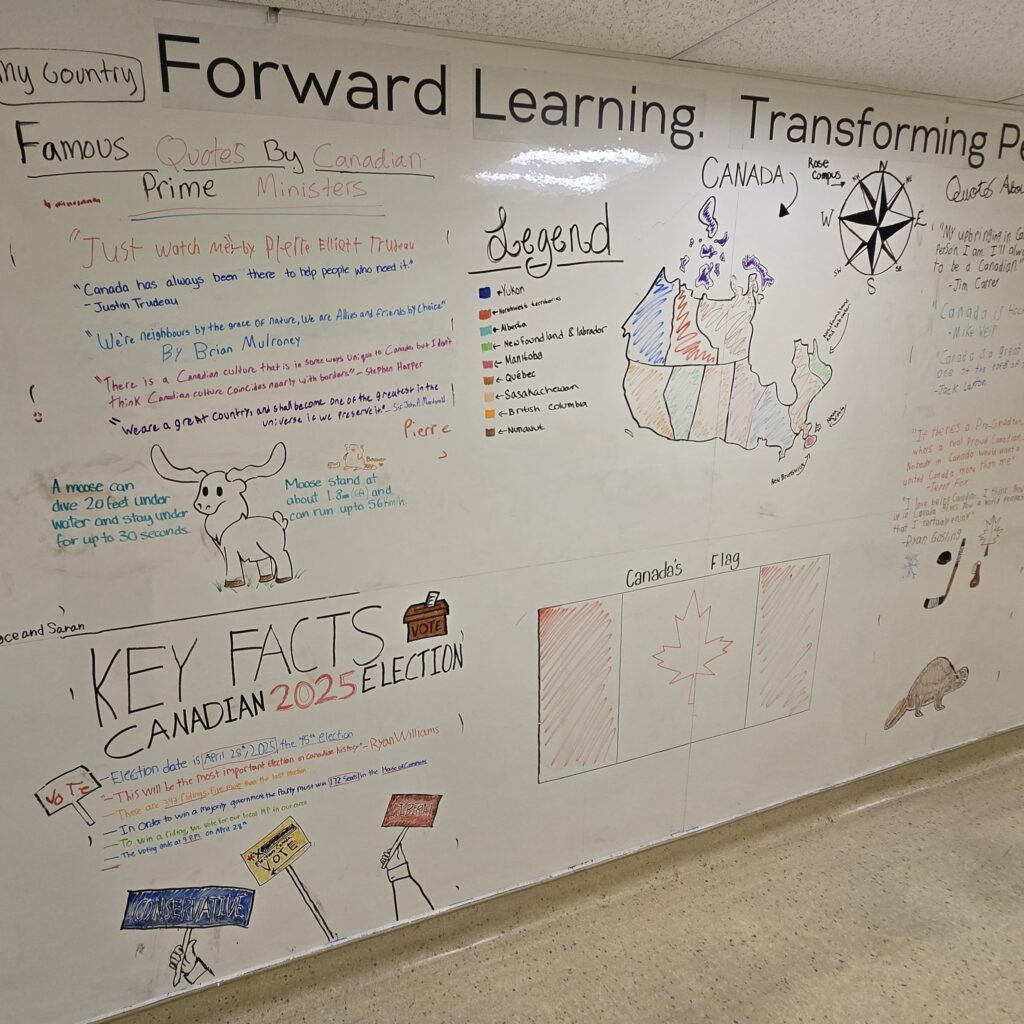 my Country
Forward Learning. Transforming Pe
Famous Quotes By Canadian
Prime Ministers
"Just watch me" by Pierre Elliott Trudeau
"Canada has always been there to help people who need it."
-Justin Trudeau
"We're neighbours by the grace of nature, We are Allies and friends by Choice"
By Brian Mulroney
"There is a Canadian culture that is in some ways unique to Canada, but I don't
think Canadian culture coincides neatly with borders" - Stephen Harper
"We are a great country, and shall become one of the greatest in the
universe if we preserve it." - Sir John A Macdonald
Pierre
Beaver
A moose can
dive 20 feet under
water and stay under
for up to 30 seconds.
Moose stand at
about 1.8m (6ft) and
can run up to 56 km/h.
Legend
Yukon
Northwest territories
Alberta
Newfoundland & labrador
Manitoba
Québec
Sasakachewan
British Columbia
Nunavut
CANADA
Rose
Campus
N
W
E
S
SW
SE
Newfoundland
and labrador
New Brunswick
Quotes Abou
"My upbringing in Ca
Person I am. I'll alwa
to be a Canadian"
-Jim Carrey
"Canada is Hoc
-Mike Weir
"Canada is a great
one of the
-Jack Layton
"If there's a Pro-Canadian
who's a real Proud Canadian
Nobody in Canada would want a
united Canada more than me"
-Terry Fox
"I love being Canadian. I think
up in Canada gives you a world
that I certainly enjoy"
-Ryan Gosling
Canada's Flag
yce and Saran
KEY FACTS
VOTE
CANADIAN 2025 ELECTION
-Election date is April 28th, 2025, the 45th election
-"This will be the most important election in Canadian history" - Ryan Williams
-There are 343 ridings, Five more than the last election
-In Order to win a majority government the Party must win 172 seats in the House of Commons
-To win a riding, we vote for our local MP in our area
-The voting ends at 9 P.M. on April 28th
VOTE
VOTE
LIBERAL
CONSERVATIVE